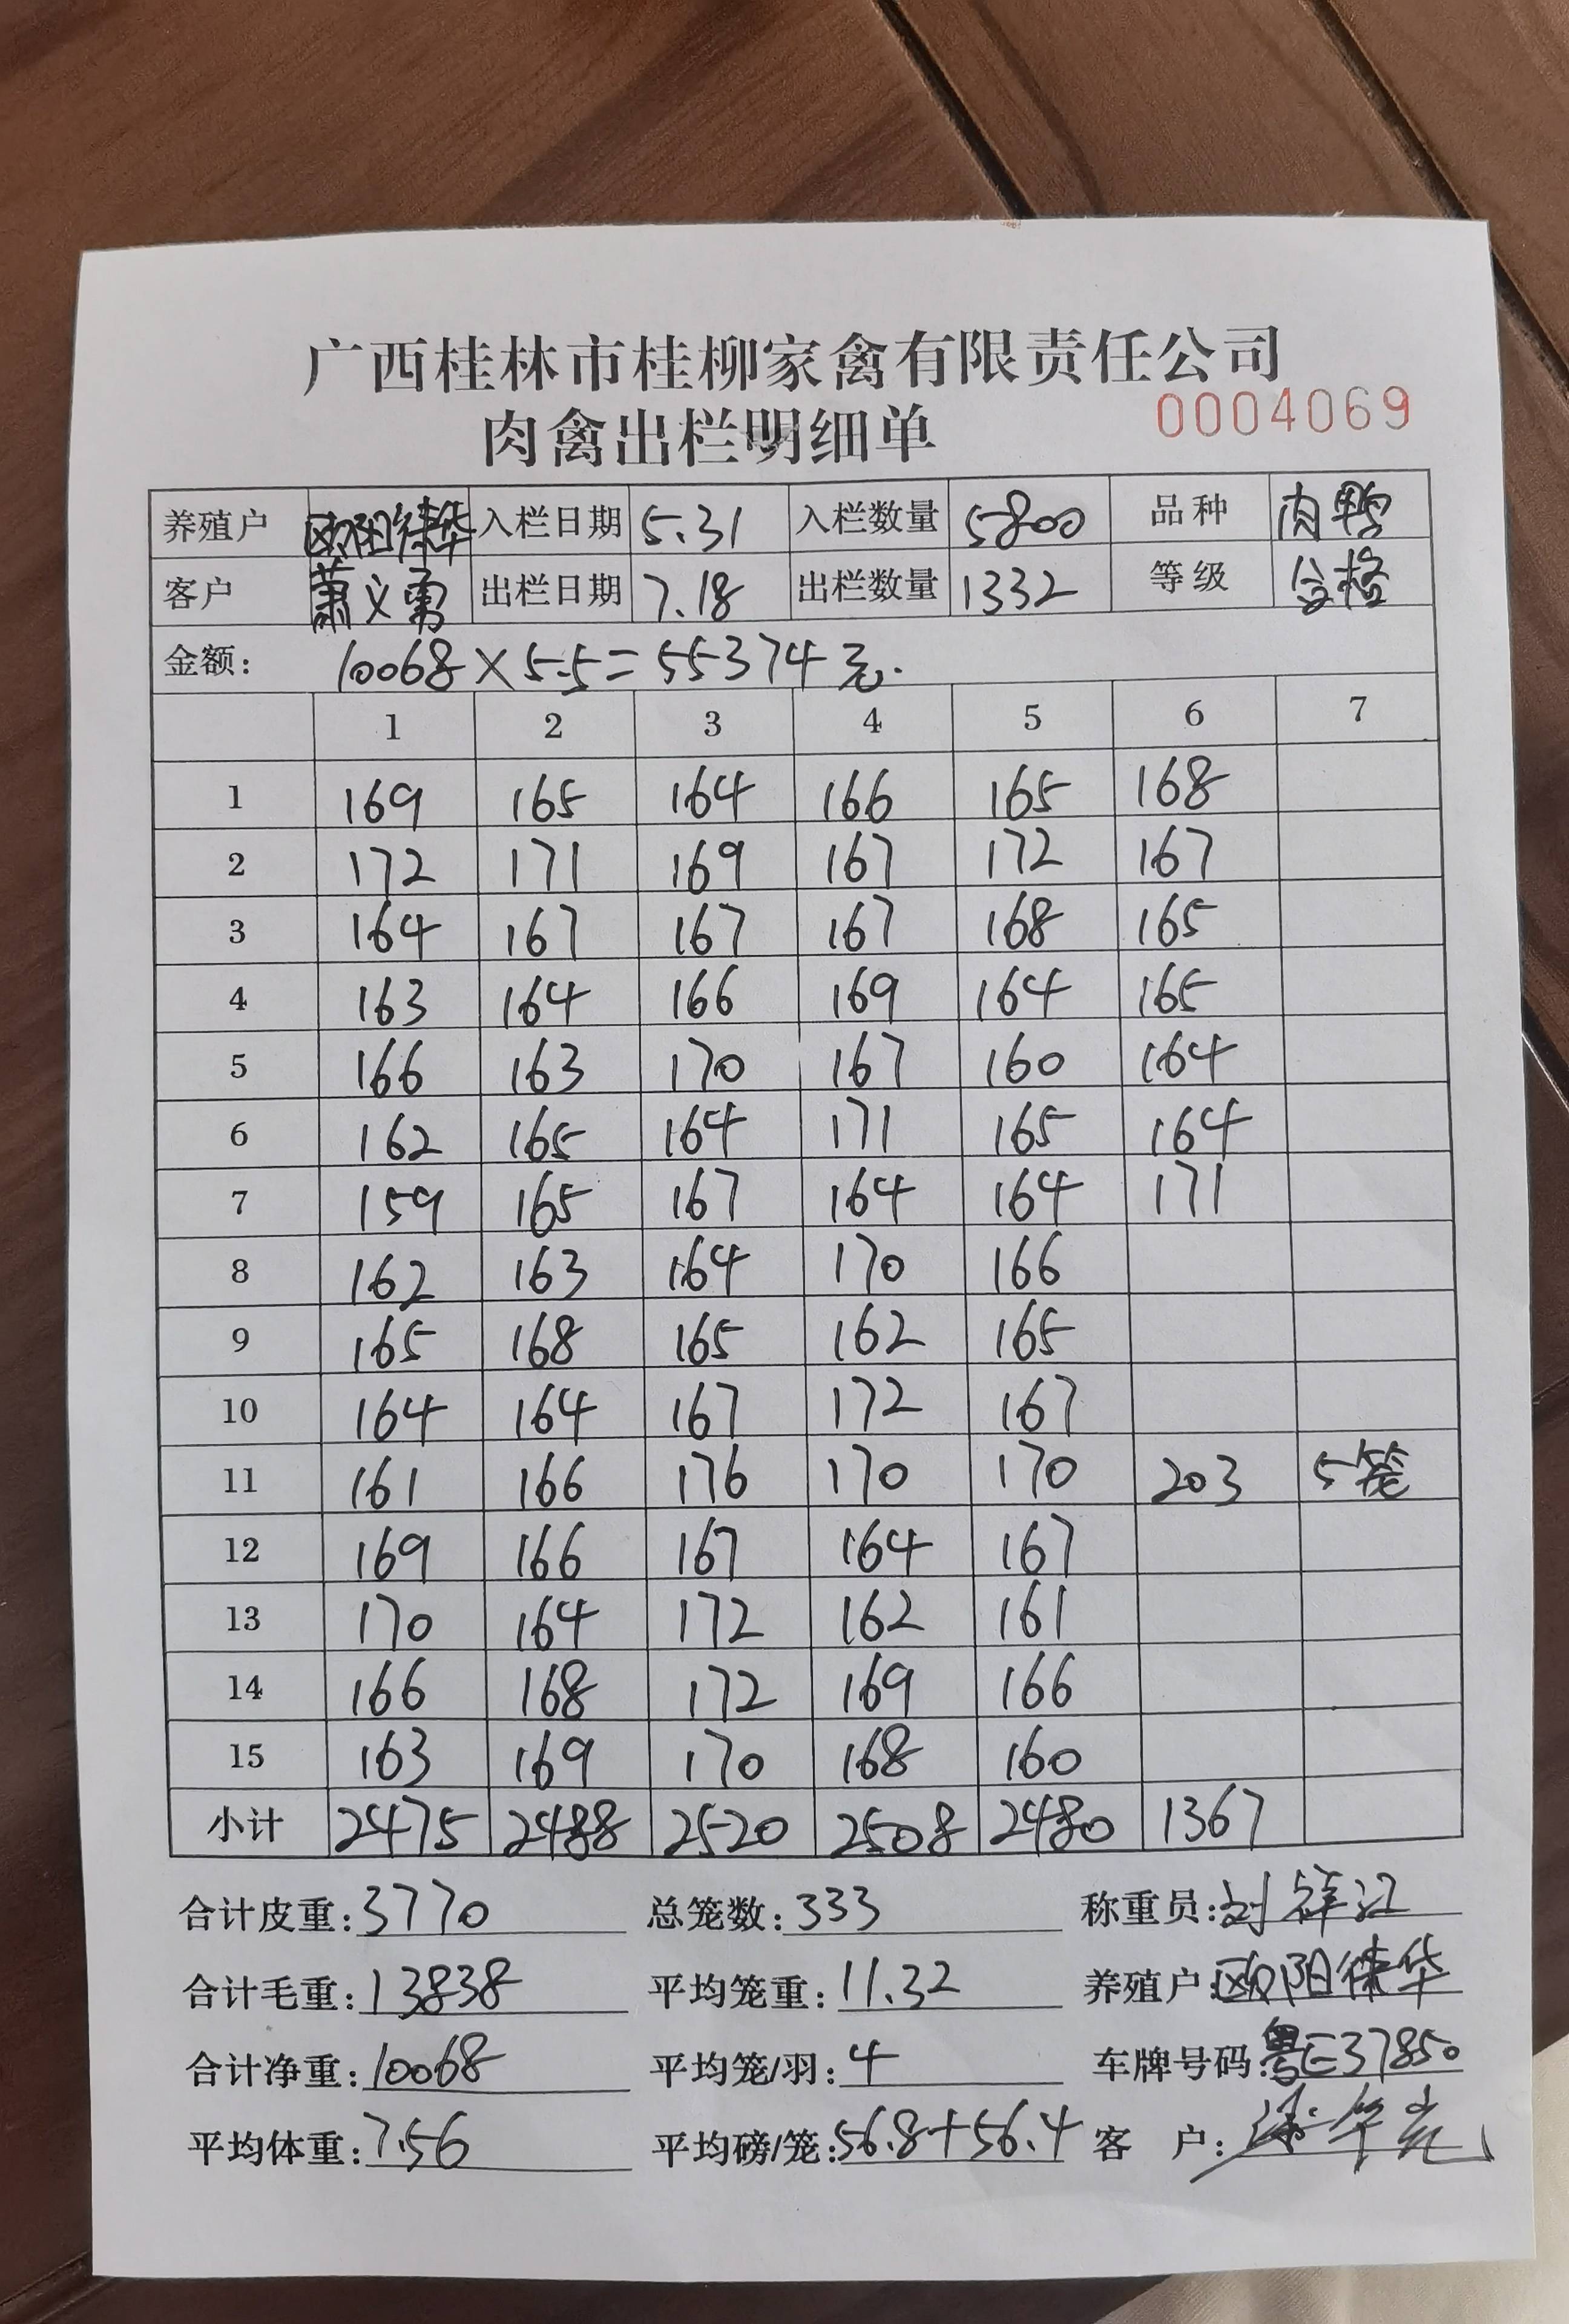 广西桂林市桂柳家禽有限责任公司
肉禽出栏明细单 0004069
养殖户 欧阳徕华 入栏日期 5.31 入栏数量 5800 品种 肉鸭
客户 萧义勇 出栏日期 7.18 出栏数量 1332 等级 合格
金额: 10068×5.5=55374元.
1 2 3 4 5 6 7
1 169 165 164 166 165 168
2 172 171 169 167 172 167
3 164 167 167 167 168 165
4 163 164 166 169 164 165
5 166 163 170 167 160 164
6 162 165 164 171 165 164
7 159 165 167 164 164 171
8 162 163 164 170 166
9 165 168 165 162 165
10 164 164 167 172 167
11 161 166 176 170 170 203 5笼
12 169 166 167 164 167
13 170 164 172 162 161
14 166 168 172 169 166
15 163 169 170 168 160
小计 2475 2488 2520 2508 2480 1367
合计皮重: 3770 总笼数: 333 称重员: 刘祥江
合计毛重: 13838 平均笼重: 11.32 养殖户: 欧阳徕华
合计净重: 10068 平均笼/羽: 4 车牌号码: 粤E37850
平均体重: 7.56 平均磅/笼: 56.8+56.4 客 户: